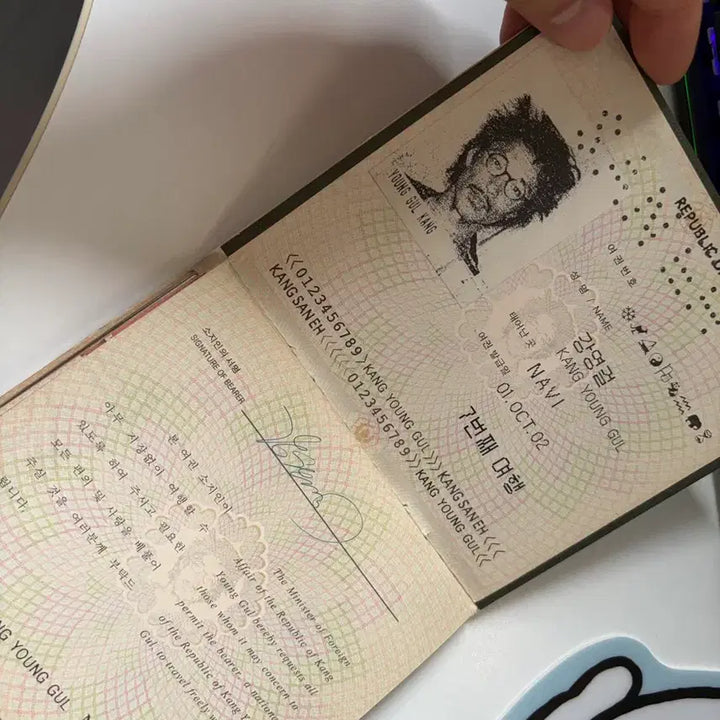 REPUBLIC
YOUNG GUL KANG
여권번호
성명 / NAME
강영걸
KANG YOUNG GUL
태어난 곳
NAVI
여권 발급일
01. OCT. 02
7번째 여행
《0123456789》KANG YOUNG GUL》》KANGSANEH《《
KANGSANEH《《《《0123456789》》KANG YOUNG GUL《《
소지인의 서명
SIGNATURE OF BEARER
본 여권 소지인이
아무 지장없이 여행할 수
있도록 하여 주시고 필요한
모든 편의 및 사랑을 베풀어
주실 것을 여러분께 부탁드
립니다.
The Minister of Foreign
Affair of the Republic of Kang
Young Gul hereby requests all
those whom it may concern to
permit the bearer, a national
of the Republic of Kang
Gul, to travel freely
NG YOUNG GUL